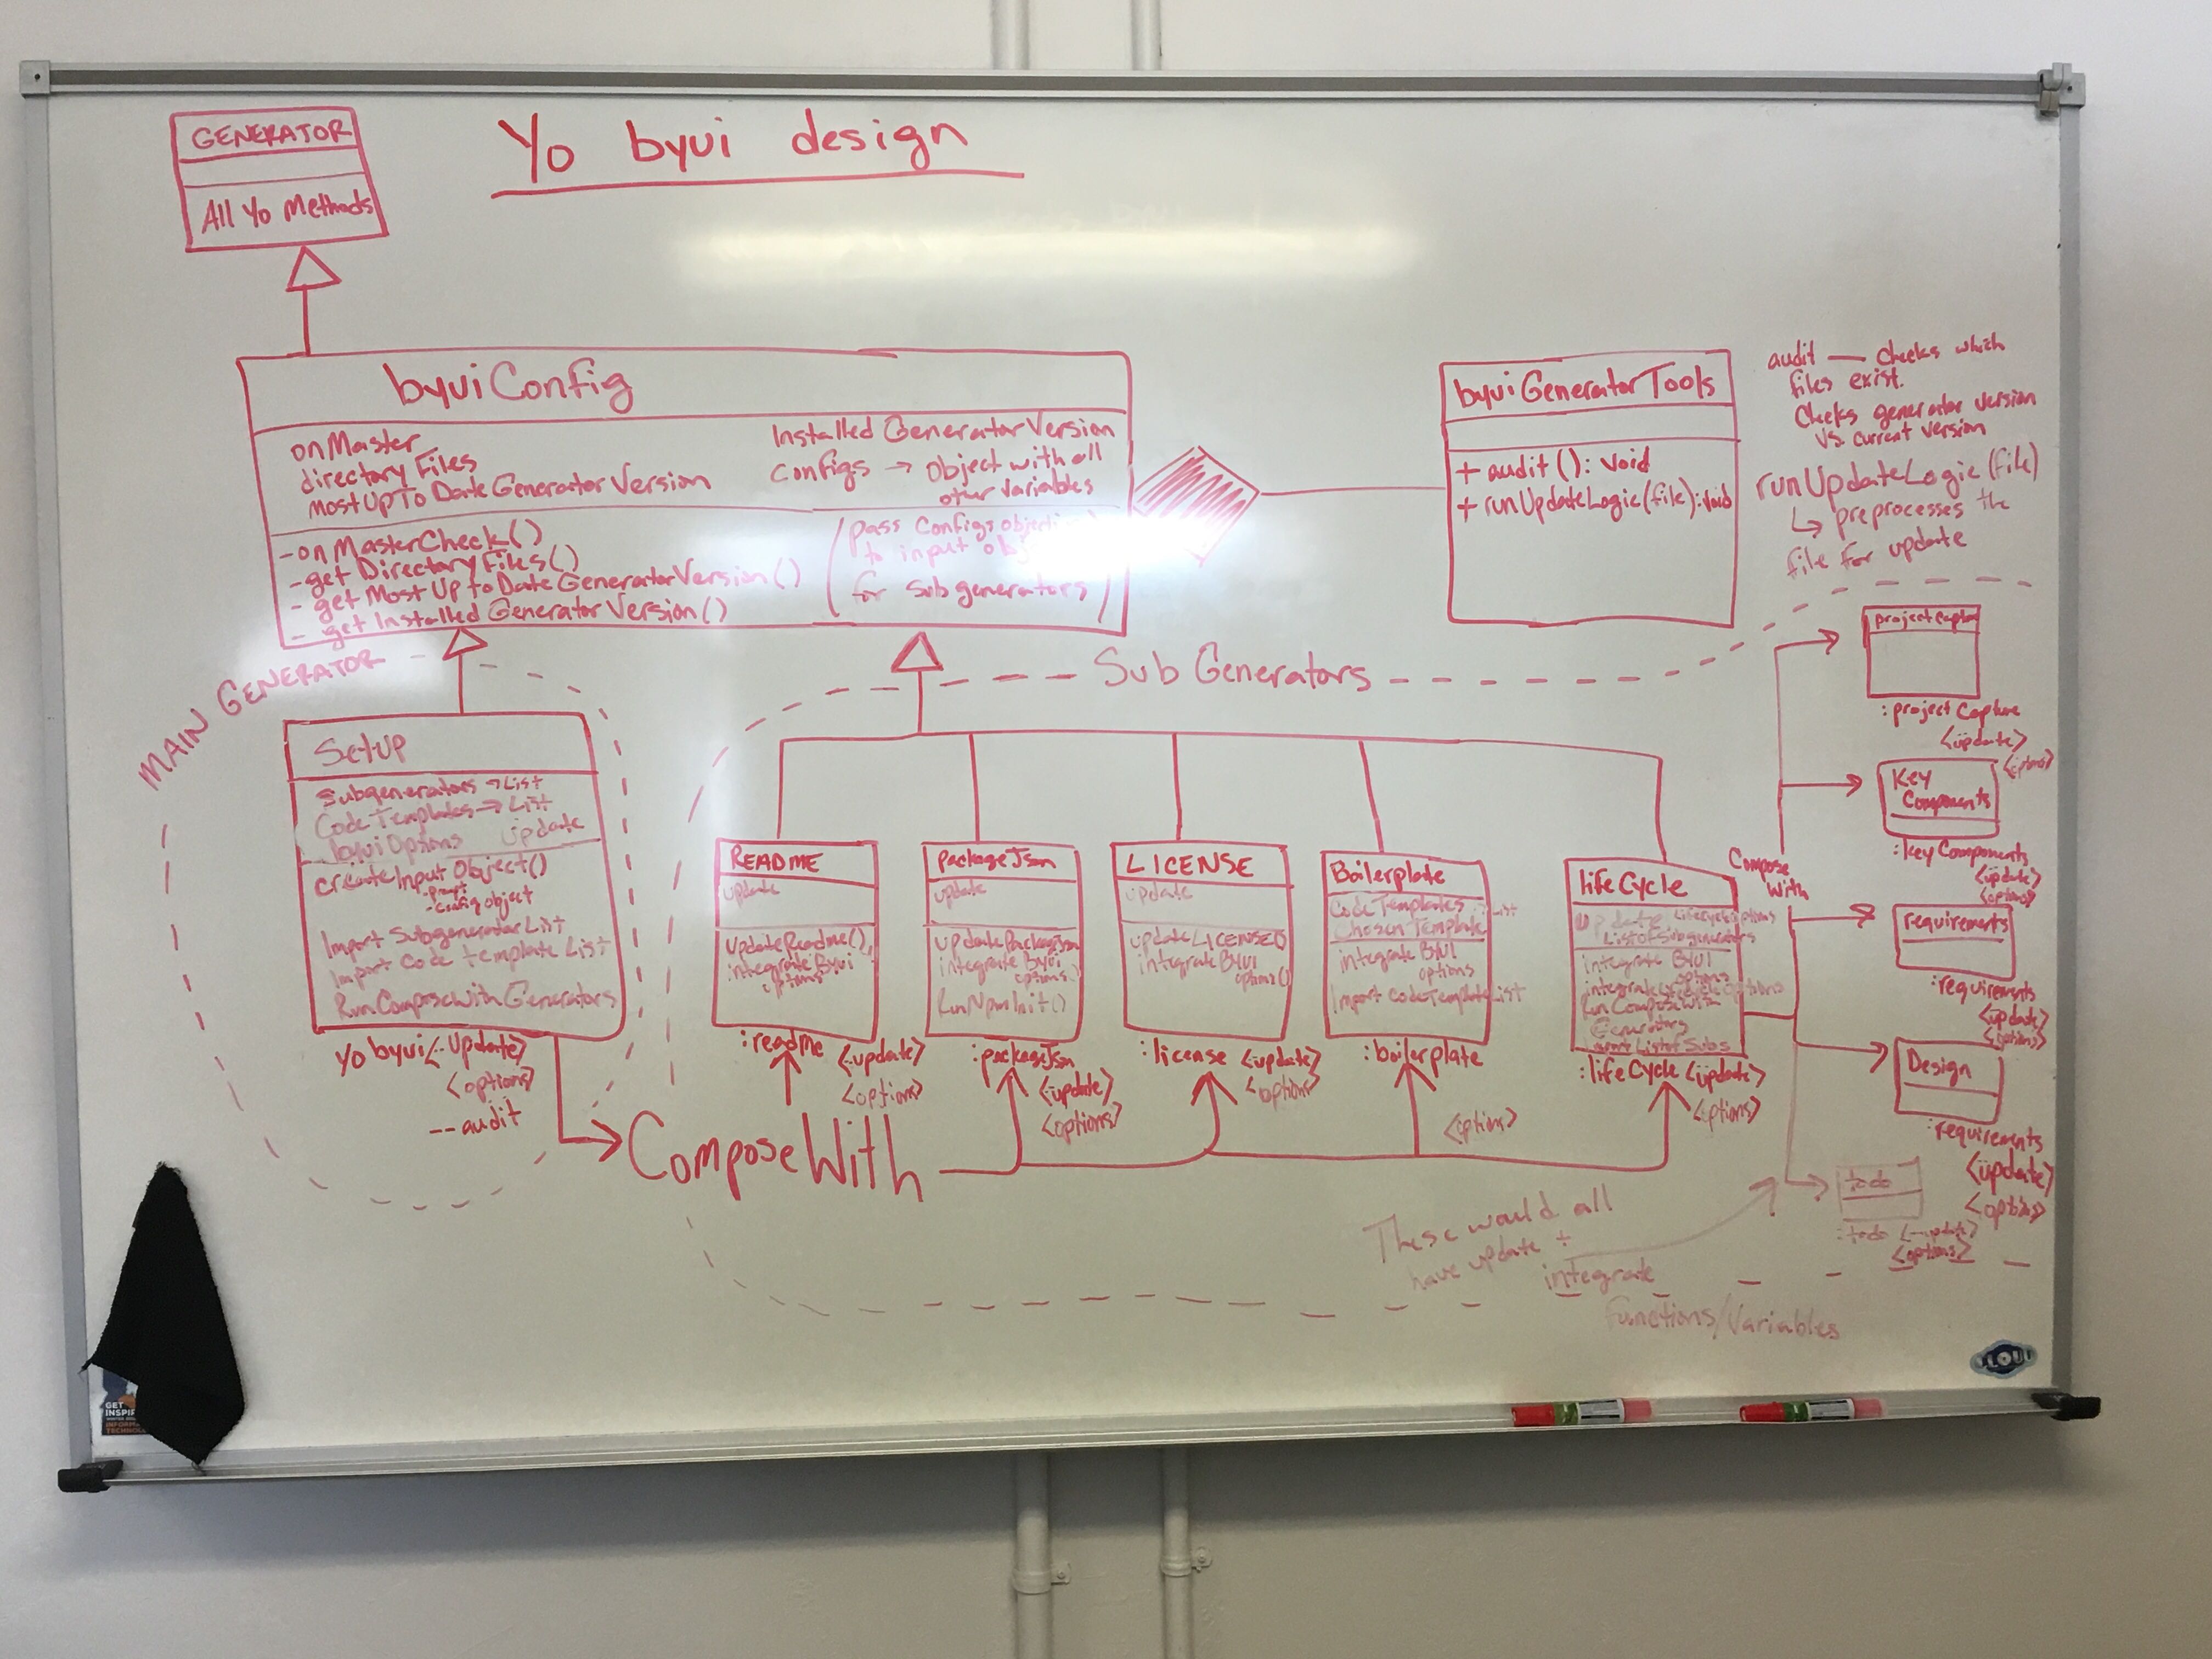 GENERATOR
All Yo Methods
Yo byui design
byuiConfig
onMaster
directory Files
MostUpToDateGeneratorVersion
Installed GeneratorVersion
Configs → Object with all
other variables
-onMasterCheck()
-get DirectoryFiles()
- get Most Up to Date GeneratorVersion()
- get Installed GeneratorVersion()
(pass Configs object
to input obj
for Subgenerators)
byuiGeneratorTools
+ audit(): void
+ runUpdateLogic(file):void
audit — Checks which
files exist.
Checks generator version
vs. current version
runUpdateLogic(file)
↳ preprocesses the
file for update
MAIN GENERATOR
Setup
Subgenerators → List
CodeTemplates → List
byuiOptions update
createInputObject()
-prompt
-config object
Import Subgenerator List
Import Code template List
RunComposeWithGenerators
yo byui <--update>
<options>
--audit
Sub Generators
README
update
updateReadme()
integrate Byui
options
:readme <--update>
<options>
packageJson
update
updatePackageJson
integrate Byui
options()
RunNpmInit()
:packageJson
<update>
<options>
LICENSE
update
updateLICENSE()
integrate BYUI
options()
:license <--update>
<options>
Boilerplate
CodeTemplates List
Chosen Template
integrate BYUI
options
Import CodeTemplateList
:boilerplate
<options>
lifeCycle
Update LifecycleOptions
ListofSubgenerators
Integrate BYUI
options
integrateLifecycleOptions
RunComposeWith
Generators
ListofSubs
:lifeCycle <update>
<options>
ComposeWith
Compose
With
project Capture
:project Capture
<update>
<options>
Key
Components
:keyComponents
<update>
<options>
requirements
:requirements
<update>
<options>
Design
:requirements
<update>
<options>
todo
:todo <--update>
<options>
These would all
have update +
integrate
Functions/Variables
GET
INSPIR
INFORM
TECHNOLO